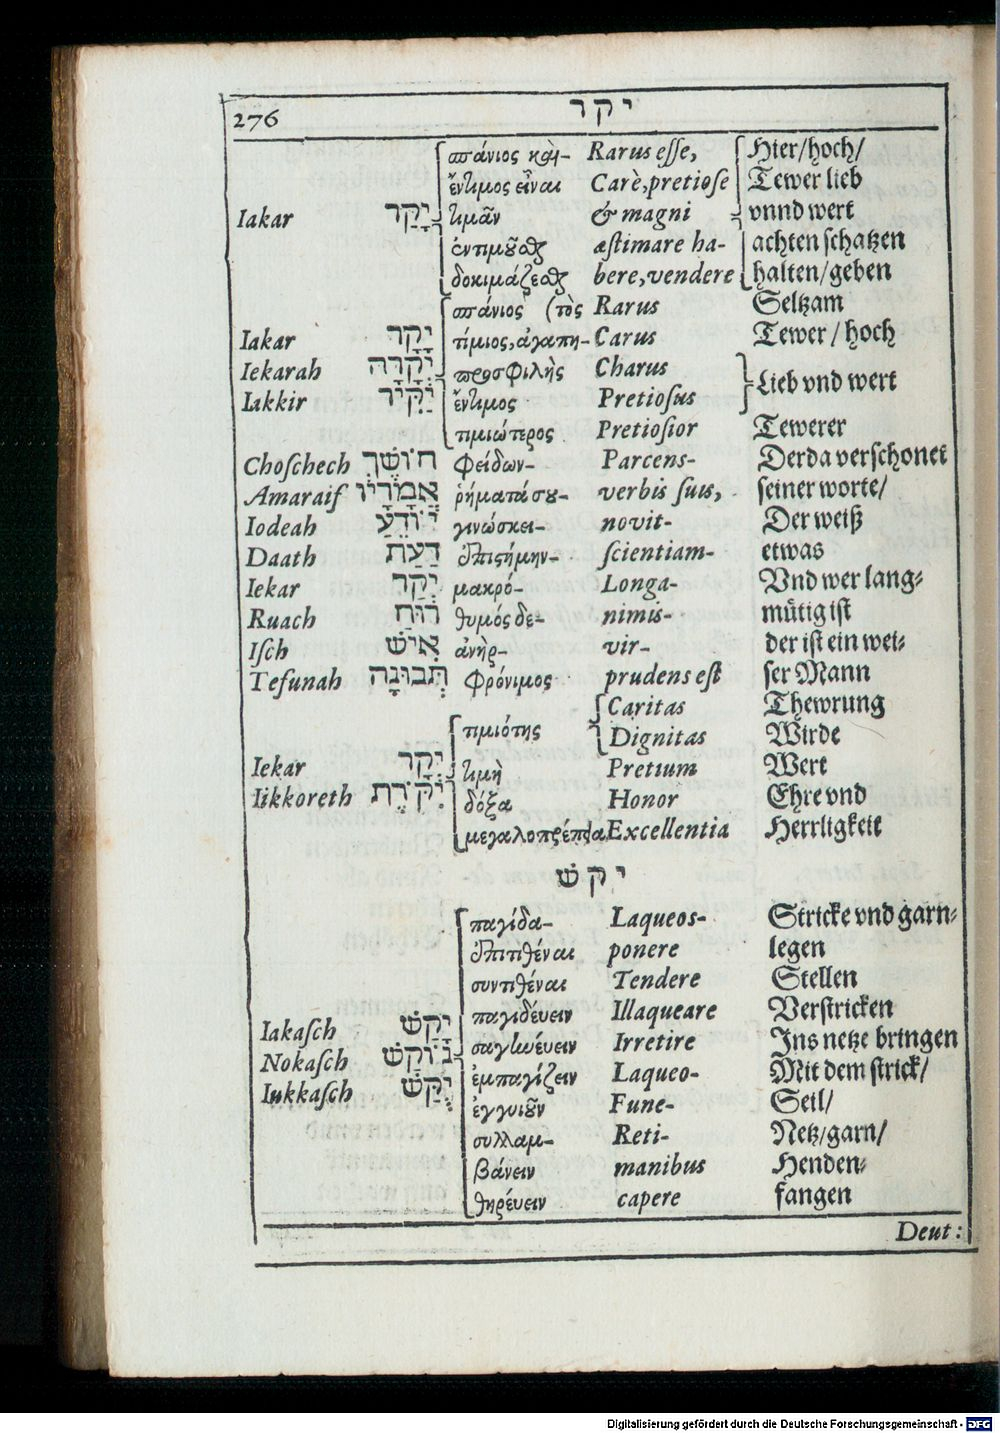 276 יקר
σπάνιος καὶ- Rarus esse, Hier/hoch/
ἔντιμος εἶναι Carè, pretiose Tewer lieb
Iakar יָקַר τιμᾶν & magni vnnd wert
ἐντιμοῦσθαι æstimare ha- achten schatzen
δοκιμάζεσθαι bere, vendere halten/geben
σπάνιος (τὸς Rarus Seltzam
Iakar יָקָר τίμιος, ἀγαπη- Carus Tewer / hoch
Iekarah יְקָרָה προσφιλὴς Charus Lieb vnd wert
Iakkir יַקִּיר ἔντιμος Pretiosus
τιμιώτερος Pretiosior Tewerer
Choschech חוֹשֵׂךְ φείδων- Parcens- Derda verschonet
Amaraif אֲמָרָיו ῥήματάσυ- verbis suis, seiner worte/
Iodeah יוֹדֵעַ γινώσκει- novit- Der weiß
Daath דַּעַת ἐπιστήμην- scientiam- etwas
Iekar יְקַר μακρό- Longa- Vnd wer lang-
Ruach רוּחַ θυμός δε- nimis- mütig ist
Isch אִישׁ ἀνὴρ- vir- der ist ein wei-
Tefunah תְּבוּנָה φρόνιμος prudens est ser Mann
τιμιότης Caritas Thewrung
Dignitas Wirde
Iekar יְקָר τιμὴ Pretium Wert
Iikkoreth יִקֹּרֶת δόξα Honor Ehre vnd
μεγαλοπρέπεια Excellentia Herrligkeit
יקשׁ
παγίδα- Laqueos- Stricke vnd garn-
ἐπιτιθέναι ponere legen
συντιθέναι Tendere Stellen
παγιδέυειν Illaqueare Verstricken
Iakasch יָקַשׁ σαγηνέυειν Irretire Ins netze bringen
Nokasch נוֹקַשׁ ἐμπαγίζειν Laqueo- Mit dem strick/
Iukkasch יֻקַּשׁ ἐγγυιοῦν Fune- Seil/
συλλαμ- Reti- Netz/garn/
βάνειν manibus Henden-
θηρέυειν capere fangen
Deut:
Digitalisierung gefördert durch die Deutsche Forschungsgemeinschaft - DFG